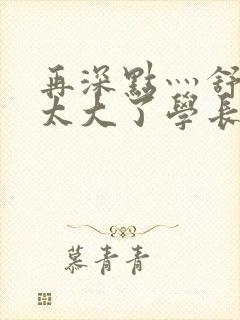 再深點灬舒
太大了學長
慕青青